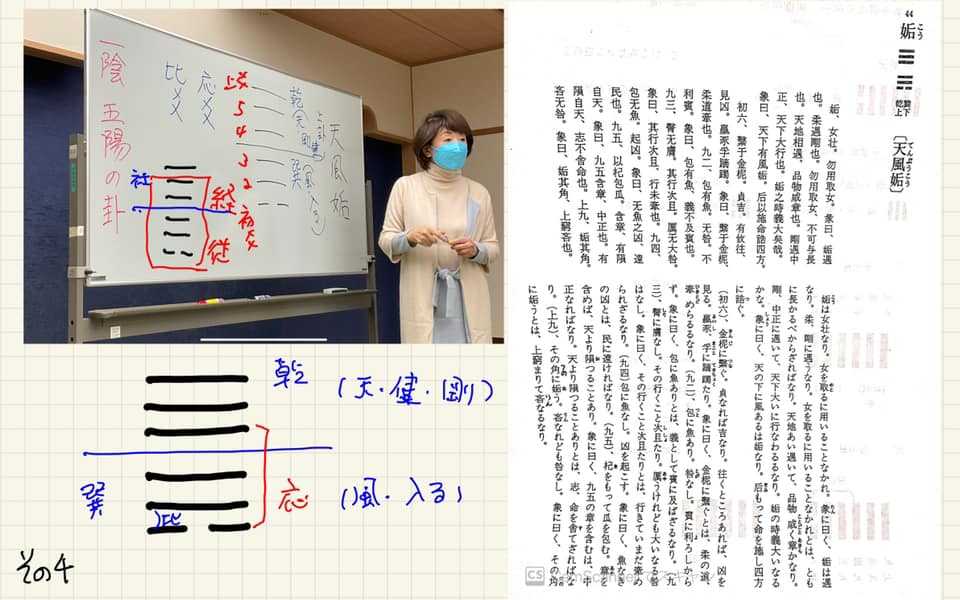 一陰五陽の卦
比爻
応爻
上爻
5
4
3
2
初爻
天風姤
乾(天・剛健)
巽(風・入る)
社
従
乾 (天・健・剛)
巽 (風・入る)
応
比
その4
姤 こう
巽下
乾上
〔天風姤〕
姤、女壮。勿用取女。彖曰、姤遇
也。柔遇剛也。勿用取女、不可与長
也。天地相遇、品物咸章也。剛遇中
正、天下大行也。姤之時義大矣哉。
象曰、天下有風姤。后以施命誥四方。
初六、繋于金柅。貞吉。有攸往、
見凶。羸豕孚蹢躅。象曰、繋于金柅、
柔道牽也。九二、包有魚。无咎。不
利賓。象曰、包有魚、義不及賓也。
九三、臀无膚。其行次且。厲无大咎。
象曰、其行次且、行未牽也。九四、
包无魚。起凶。象曰、无魚之凶、遠
民也。九五、以杞包瓜。含章。有隕
自天。象曰、九五含章、中正也。有
隕自天、志不舎命也。上九、姤其角。
吝无咎。象曰、姤其角、上窮吝也。
姤は女壮なり。女を取るに用いることなかれ。彖に曰く、姤は遇
なり。柔、剛に遇うなり。女を取るに用いることなかれとは、とも
に長かるべからざればなり。天地あい遇いて、品物咸く章かなり。
剛、中正に遇いて、天下大いに行なわるるなり。姤の時義大いなる
かな。象に曰く、天の下に風あるは姤なり。后もって命を施し四方
に誥ぐ。
(初六)、金柅に繋ぐ。貞なれば吉なり。往くところあれば、凶を
見る。羸豕、孚に蹢躅たり。象に曰く、金柅に繋ぐとは、柔の道、
牽めらるるなり。(九二)、包に魚あり。咎なし。賓に利ろしから
ず。象に曰く、包に魚ありとは、義として賓に及ばざるなり。(九
三)、臀に膚なし。その行くこと次且たり。厲うけれども大いなる咎
はなし。象に曰く、その行くこと次且たりとは、行きていまだ牽め
られざるなり。(九四)包に魚なし。凶を起こす。象に曰く、魚なき
の凶とは、民に遠ければなり。(九五)、杞をもって瓜を包む。章を
含めば、天より隕つることあり。象に曰く、九五の章を含むは、中
正なればなり。天より隕つることありとは、志、命を舎てざればな
り。(上九)、その角に姤う。吝なれども咎なし。象に曰く、その角
に姤うとは、上窮まりて吝なるなり。
CS CamScanner